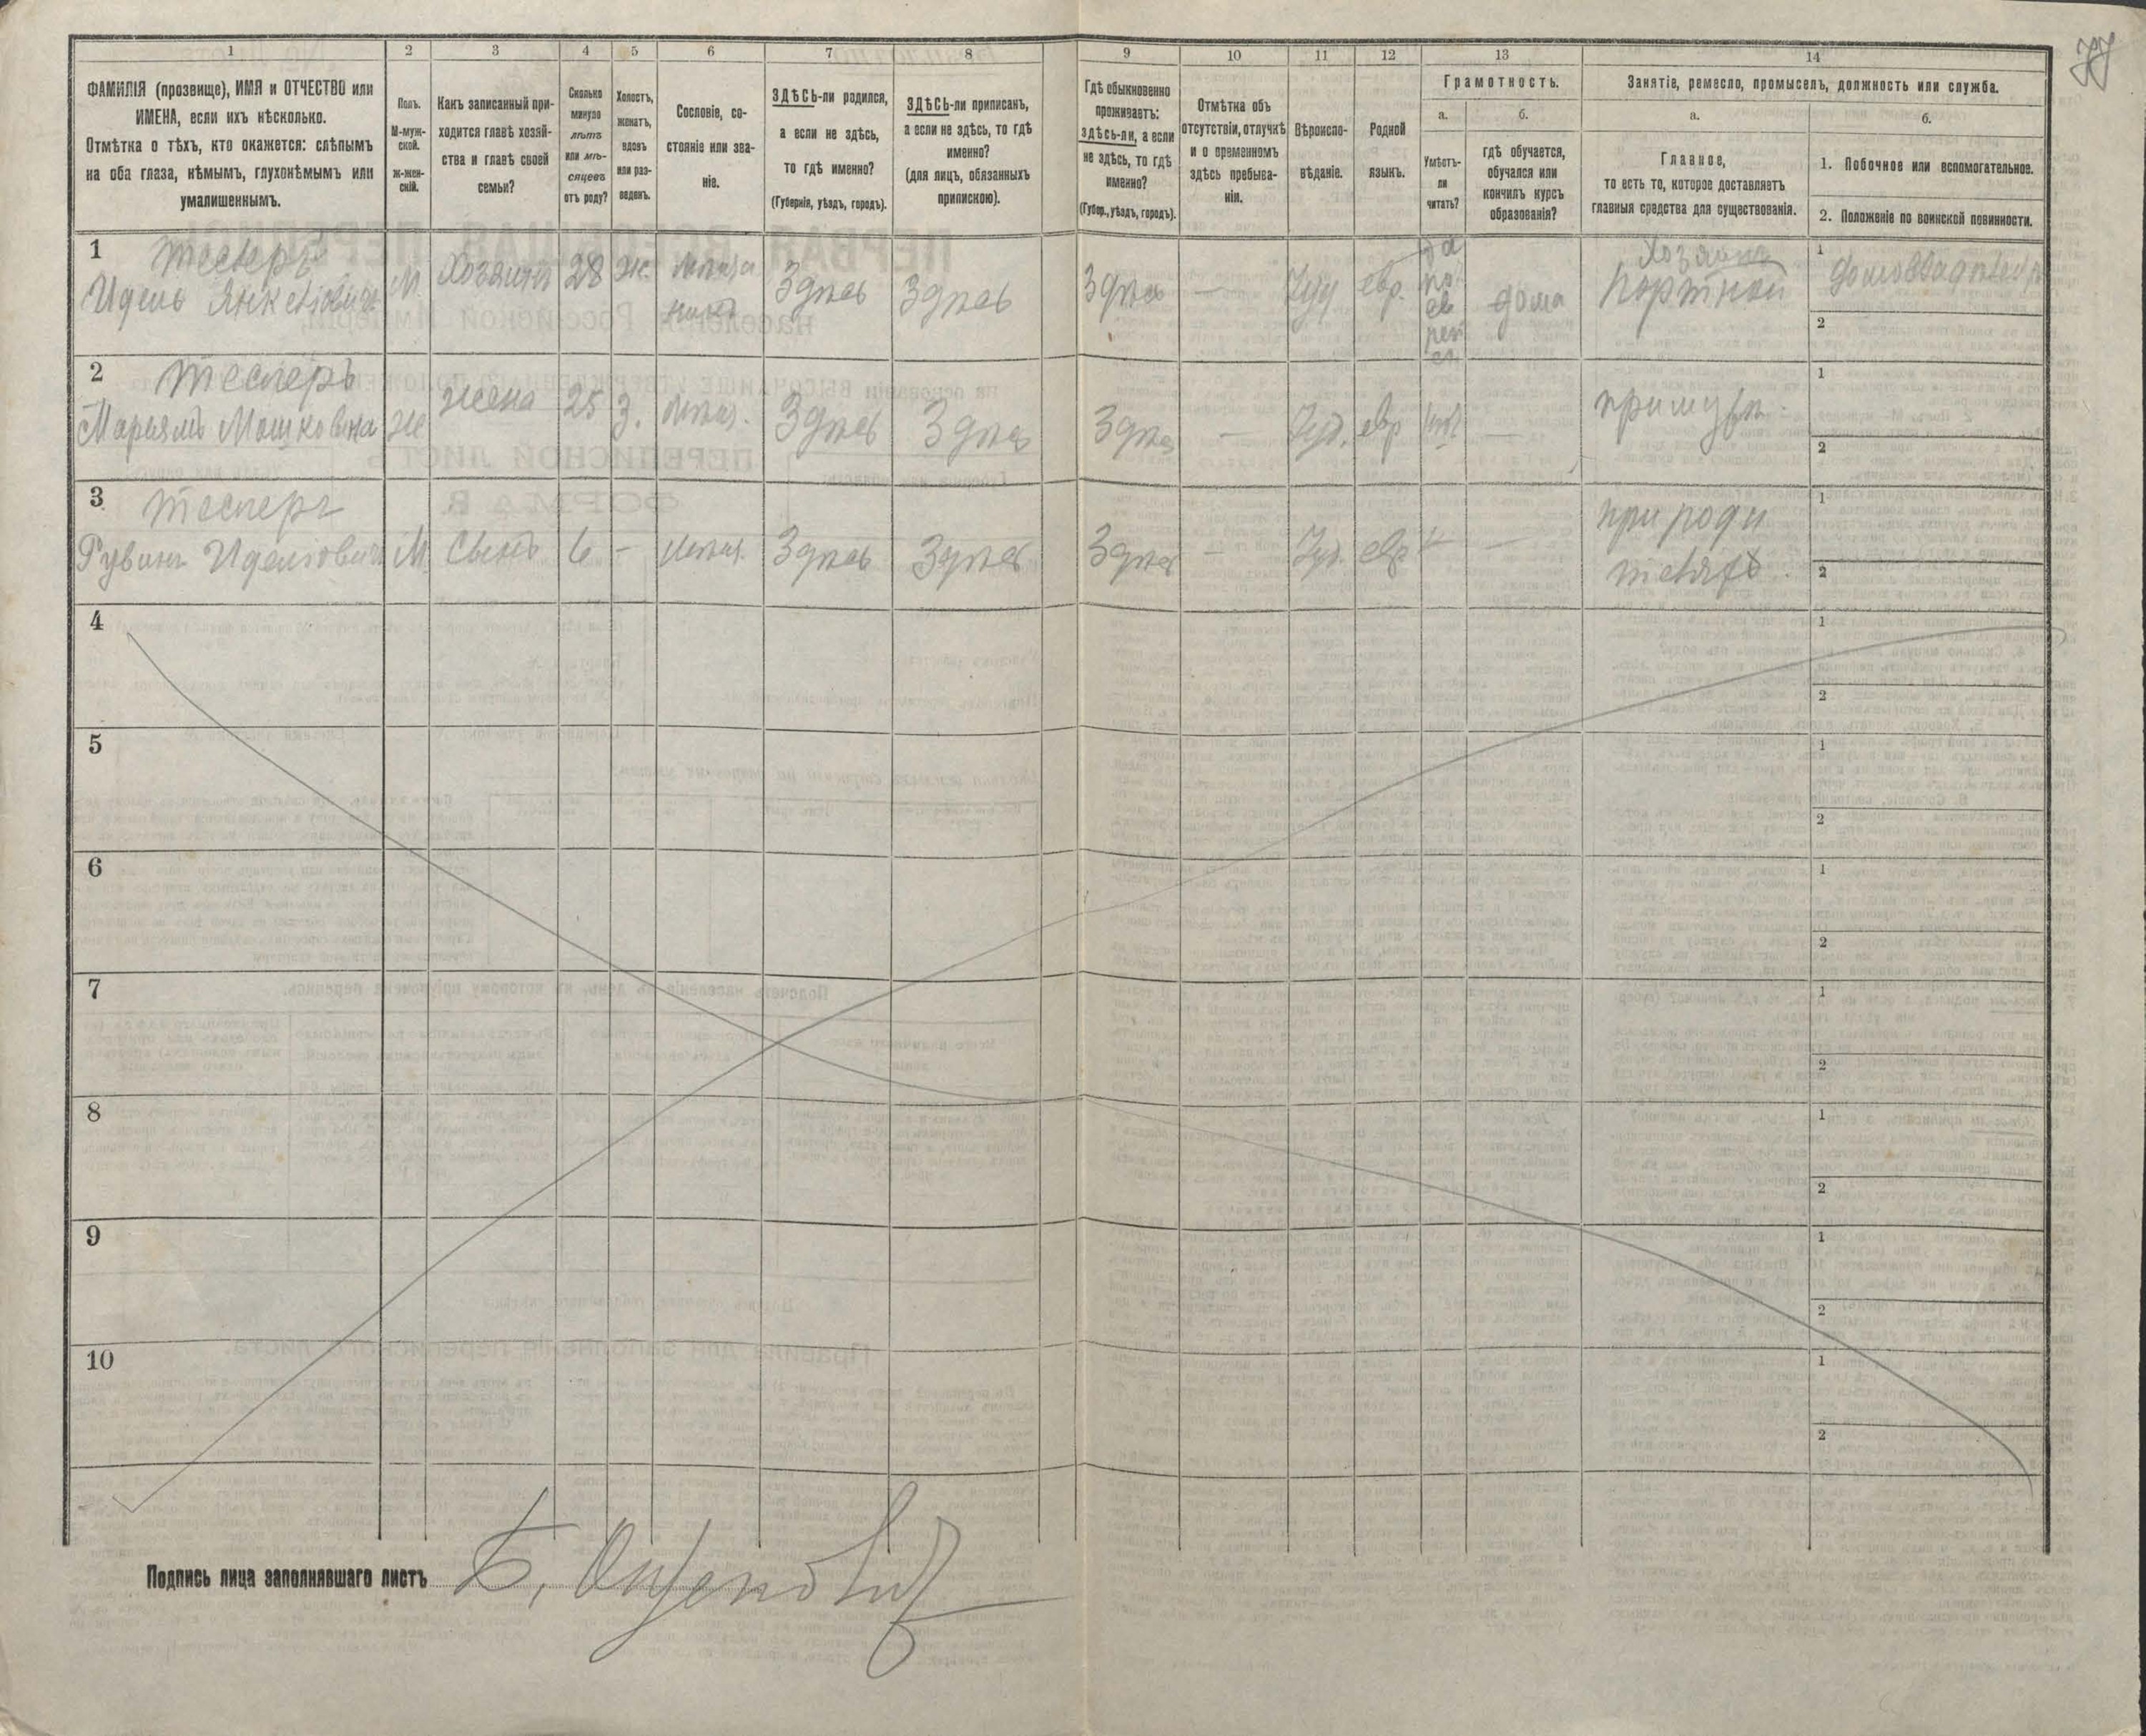 77
1
2
3
4
5
6
7
8
9
10
11
12
13
14
ФАМИЛІЯ (прозвище), ИМЯ и ОТЧЕСТВО или
ИМЕНА, если ихъ нѣсколько.
Отмѣтка о тѣхъ, кто окажется: слѣпымъ
на оба глаза, нѣмымъ, глухонѣмымъ или
умалишеннымъ.
Полъ.
М-муж-
ской.
ж-жен-
скій.
Какъ записанный при-
ходится главѣ хозяй-
ства и главѣ своей
семьи?
Сколько
минуло
лѣтъ
или мѣ-
сяцевъ
отъ роду?
Холостъ,
женатъ,
вдовъ
или раз-
веденъ.
Сословіе, со-
стояніе или зва-
ніе.
ЗДѢСЬ-ли родился,
а если не здѣсь,
то гдѣ именно?
(Губернія, уѣздъ, городъ).
ЗДѢСЬ-ли приписанъ,
а если не здѣсь, то гдѣ
именно?
(для лицъ, обязанныхъ
припискою).
Гдѣ обыкновенно
проживаетъ:
здѣсь-ли, а если
не здѣсь, то гдѣ
именно?
(Губер., уѣздъ, городъ).
Отмѣтка объ
отсутствіи, отлучкѣ
и о временномъ
здѣсь пребыва-
ніи.
Вѣроиспо-
вѣданіе.
Родной
языкъ.
Грамотность.
а.
Умѣетъ-
ли
читать?
б.
гдѣ обучается,
обучался или
кончилъ курсъ
образованія?
Занятіе, ремесло, промыселъ, должность или служба.
а.
Главное,
то есть то, которое доставляетъ
главныя средства для существованія.
б.
1. Побочное или вспомогательное.
2. Положеніе по воинской повинности.
1
Идель Янкелiовичъ
М.
Хозяинъ
28
ж.
Здѣсь
Здѣсь
Здѣсь
—
Iуд
евр.
да
по
дома
Хозяинъ
Портной
1
2
2
Тесперъ
Марьямъ Мошковна
же
жена
25
З.
Здѣсь
Здѣсь
Здѣсь
—
Iуд.
евр
—
при мужѣ.
1
2
3
Тесперъ
Рувинъ Иделiовичъ
М
Сынъ
6
-
Здѣсь
Здѣсь
Здѣсь
—
Iуд.
евр
—
при роди
теляхъ.
1
2
4
1
2
5
1
2
6
1
2
7
1
2
8
1
2
9
1
2
10
1
2
Подпись лица заполнявшаго листъ